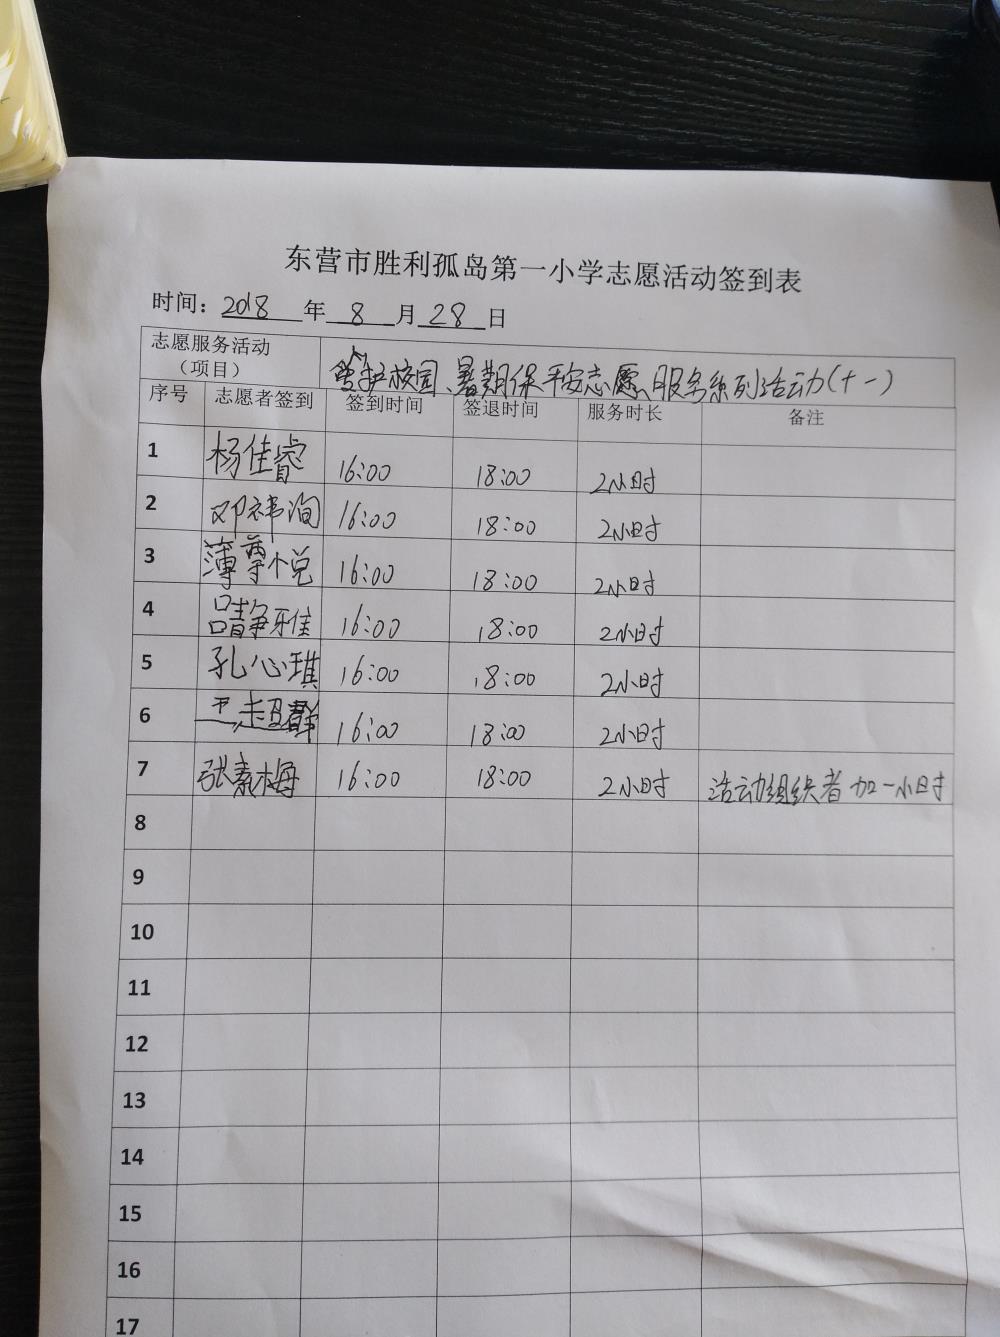 东营市胜利孤岛第一小学志愿活动签到表
时间：2018年8月28日
志愿服务活动
（项目） 护校园、暑期保平安志愿服务系列活动(十一)
序号 志愿者签到 签到时间 签退时间 服务时长 备注
1 杨佳睿 16:00 18:00 2小时
2 邓祎洵 16:00 18:00 2小时
3 薄 悦 16:00 18:00 2小时
4 静雅 16:00 18:00 2小时
5 孔心琪 16:00 18:00 2小时
6 王超群 16:00 18:00 2小时
7 张素梅 16:00 18:00 2小时 活动组织者加一小时
8
9
10
11
12
13
14
15
16
17